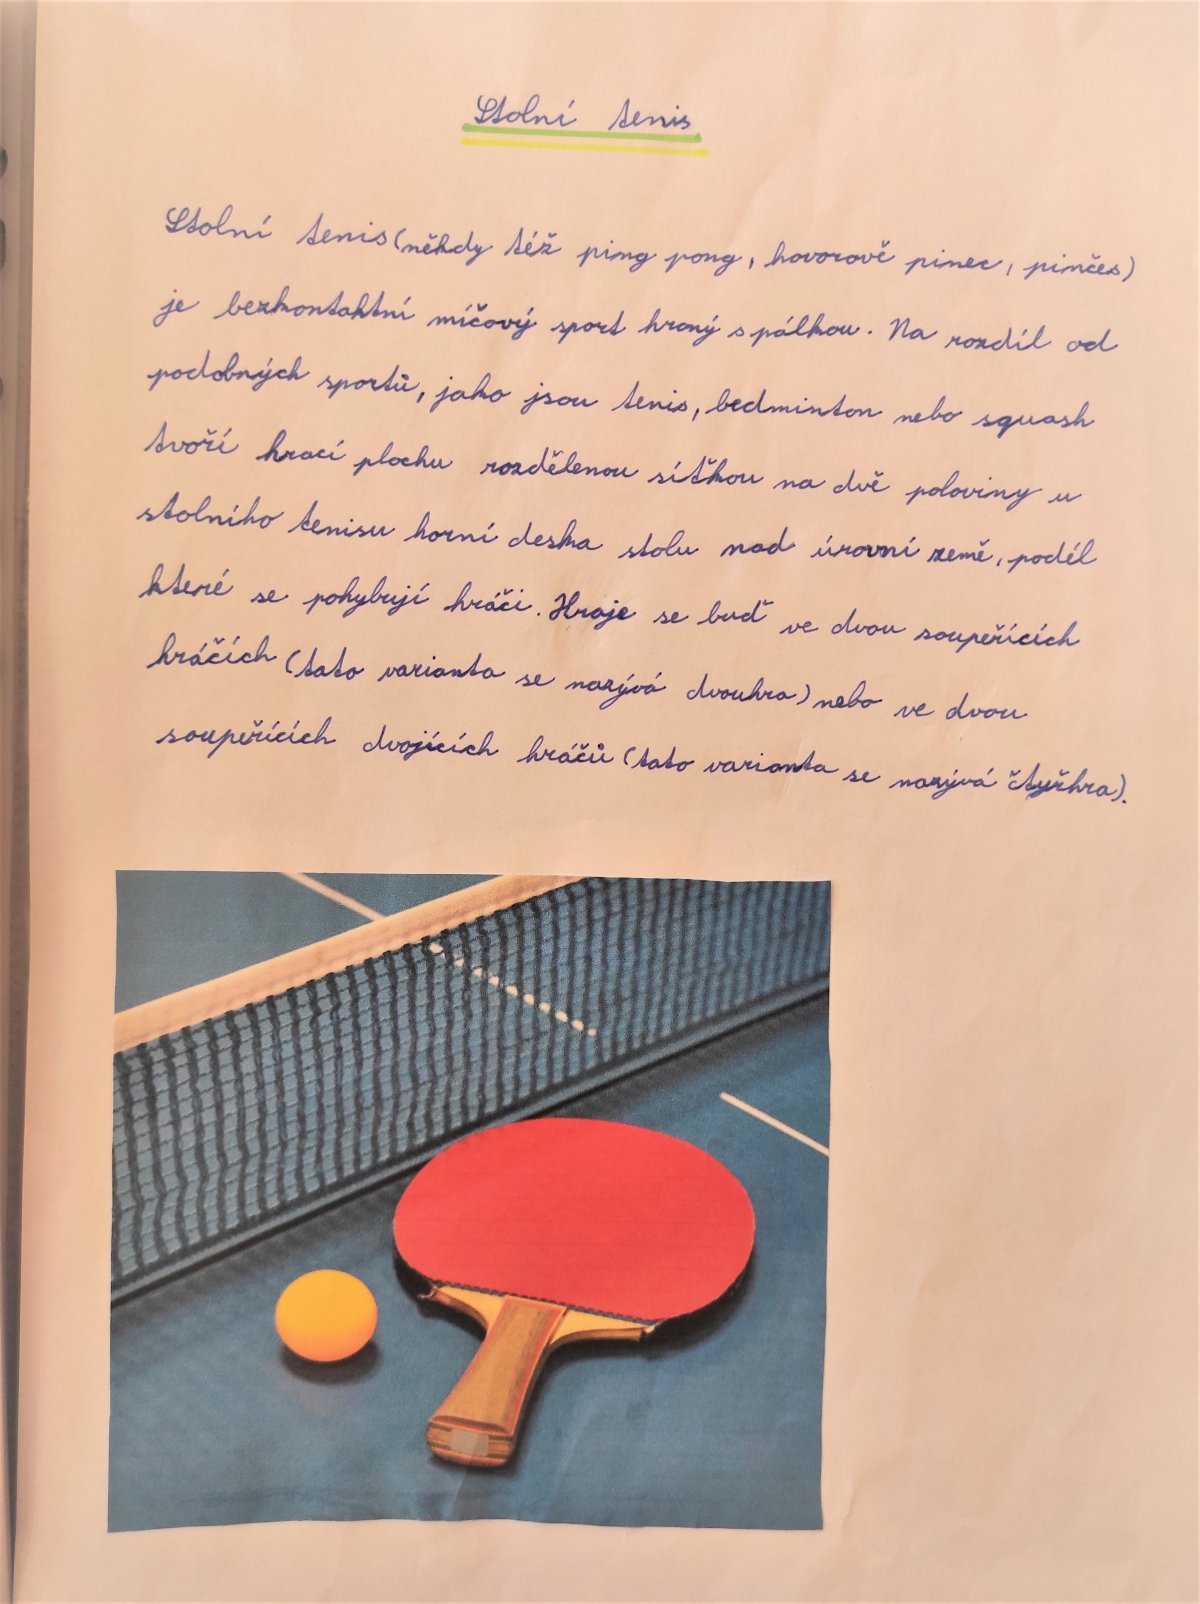 Stolní tenis
Stolní tenis (někdy též ping pong, hovorově pinec, pinčes)
je bezkontaktní míčový sport hraný s pálkou. Na rozdíl od
podobných sportů, jako jsou tenis, bedminton nebo squash
tvoří hrací plochu rozdělenou síťkou na dvě poloviny u
stolního tenisu horní deska stolu nad úrovní země, podél
které se pohybují hráči. Hraje se buď ve dvou soupeřících
hráčích (tato varianta se nazývá dvouhra) nebo ve dvou
soupeřících dvojících hráčů (tato varianta se nazývá čtyřhra).